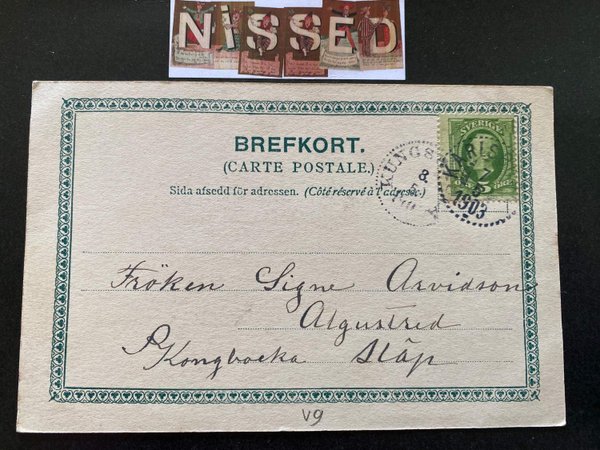 NISSED
BREFKORT.
(CARTE POSTALE.)
Sida afsedd för adressen. (Côté réservé à l'adresse.)
SVERIGE
KUNGSB
8
KARLS
1903
Fröken Signe Arvidson
Algustred
Kongbacka Släp
V9